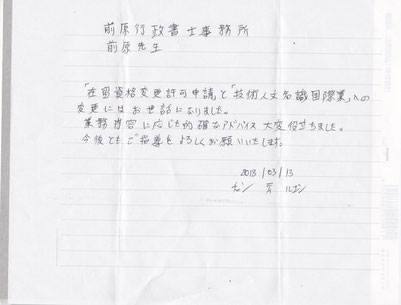 前原行政書士事務所
前原先生
「在留資格変更許可申請」と「技術人文知識国際業」への
変更にはお世話になりました。
業務内容に応じた的確なアドバイス大変役立ちました。
今後ともご指導をよろしくお願いいたします。
2013/03/13